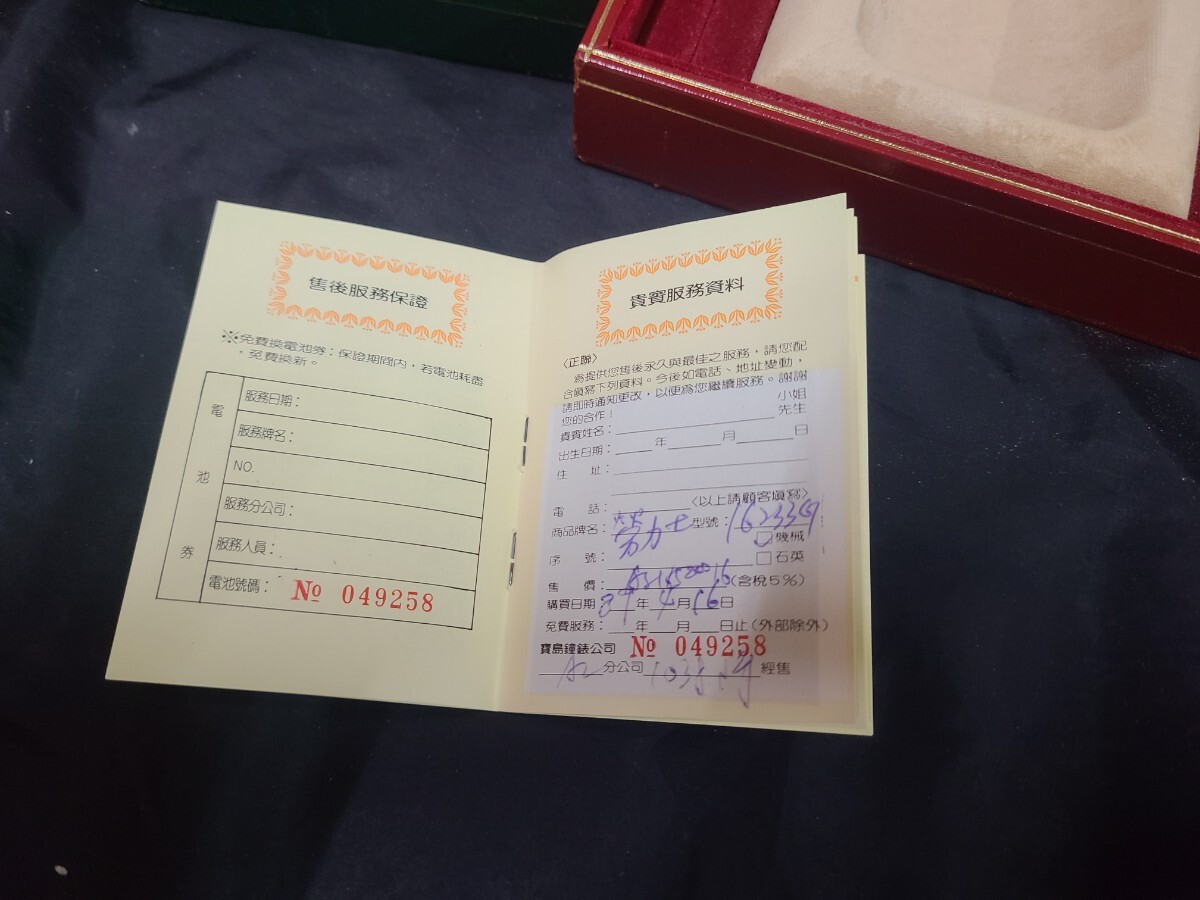 售後服務保證
※免費換電池券：保證期間內，若電池耗盡
，免費換新。
電池券
服務日期：
服務牌名：
NO.
服務分公司：
服務人員：
電池號碼： № 049258
貴賓服務資料
〈正聯〉
為提供您售後永久與最佳之服務，請您配
合填寫下列資料。今後如電話、地址變動，
請即時通知更改，以便為您繼續服務。謝謝
您的合作！
貴賓姓名： 小姐 先生
出生日期： 年 月 日
住 址：
電 話： 〈以上請顧客填寫〉
商品牌名：勞力士 型號：16233G
序 號： □機械 □石英
售 價： (含稅5%)
購買日期： 年 4月16日
免費服務： 年 月 日止(外部除外)
寶島鐘錶公司 № 049258
分公司 經售